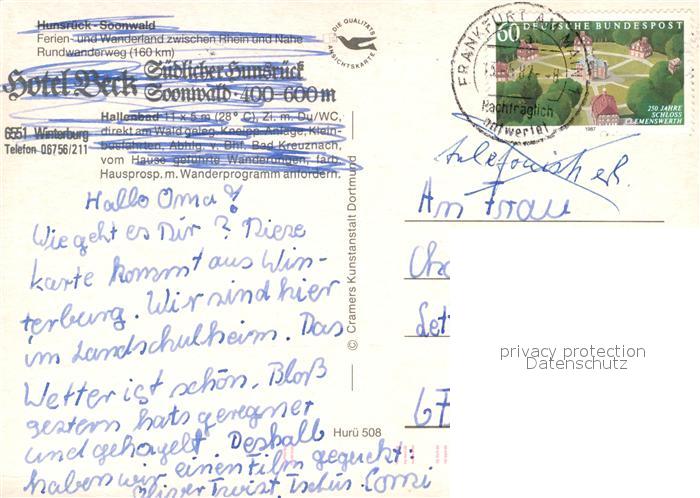 Hunsrück - Soonwald
Ferien- und Wanderland zwischen Rhein und Nahe
Rundwanderweg (160 km)
Hotel Beck
Südlicher Hunsrück
Soonwald · 400-600 m
Hallenbad 11 x 5 m (28° C), Zi. m. Du/WC,
direkt am Wald geleg. Kneipp. Anlage, Klein-
busfahrten, Abhlg. v. Bhf. Bad Kreuznach,
vom Hause geführte Wanderungen, farb.
Hausprosp. m. Wanderprogramm anfordern.
6551 Winterburg
Telefon 06756/211
Hallo Oma!
Wie geht es Dir? Diese
karte kommt aus Win-
terburg. Wir sind hier
im Landschulheim. Das
Wetter ist schön. Bloß
gestern hats geregnet
und gehagelt. Deshalb
haben wir einen Film geguckt:
Oliver Twist. Tschüs. Comi
DIE QUALITÄTS
ANSICHTSKARTE
© Cramers Kunstanstalt Dortmund
Hurü 508
FRANKFURT AM MAIN
Nachträglich
entwertet
60 DEUTSCHE BUNDESPOST
250 JAHRE
SCHLOSS
CLEMENSWERTH
1987
telefonisch er.
An Frau
67
privacy protection
Datenschutz